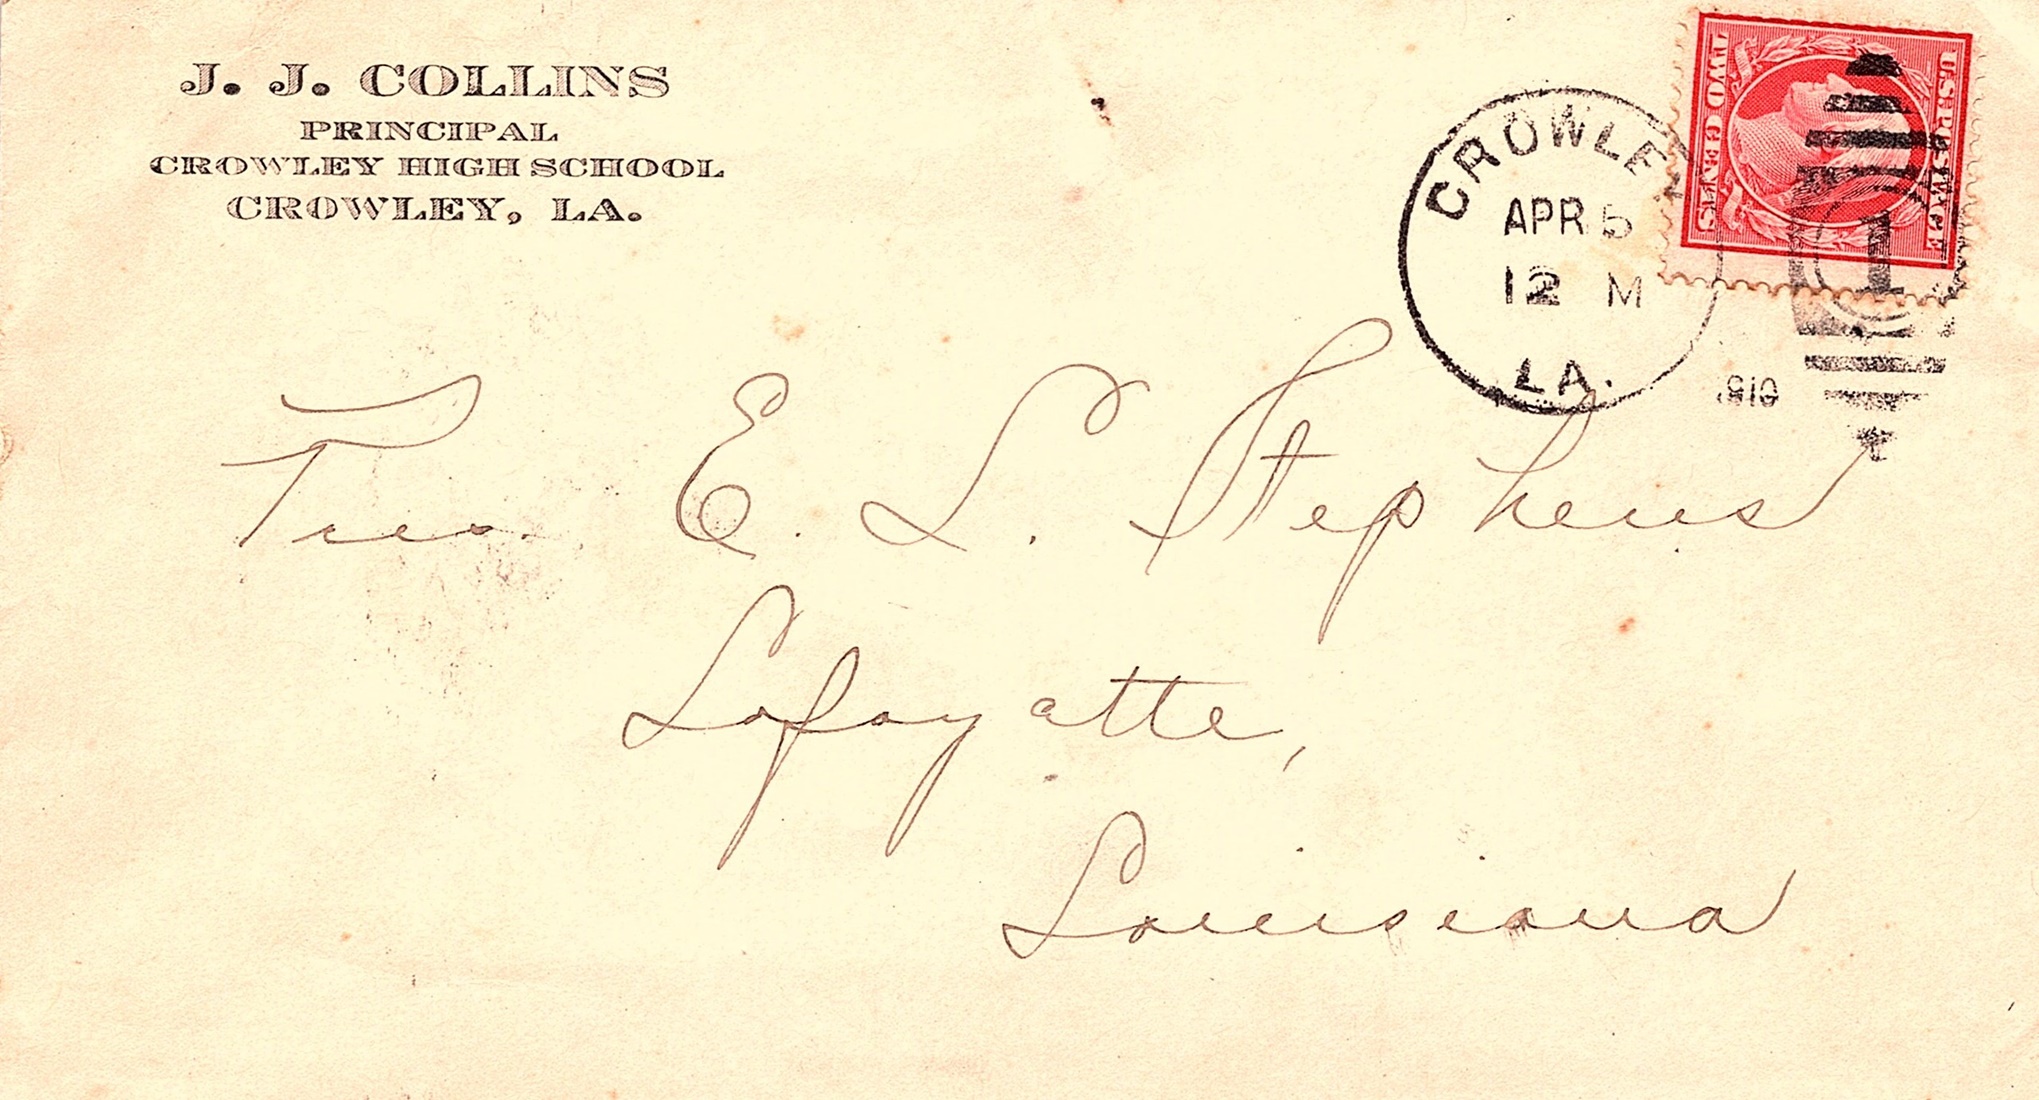 J. J. COLLINS
PRINCIPAL
CROWLEY HIGH SCHOOL
CROWLEY, LA.
CROWLEY
APR 5
12 M
LA.
U.S. POSTAGE
TWO CENTS
1
E. L. Stephens
Lafayette,
Louisiana